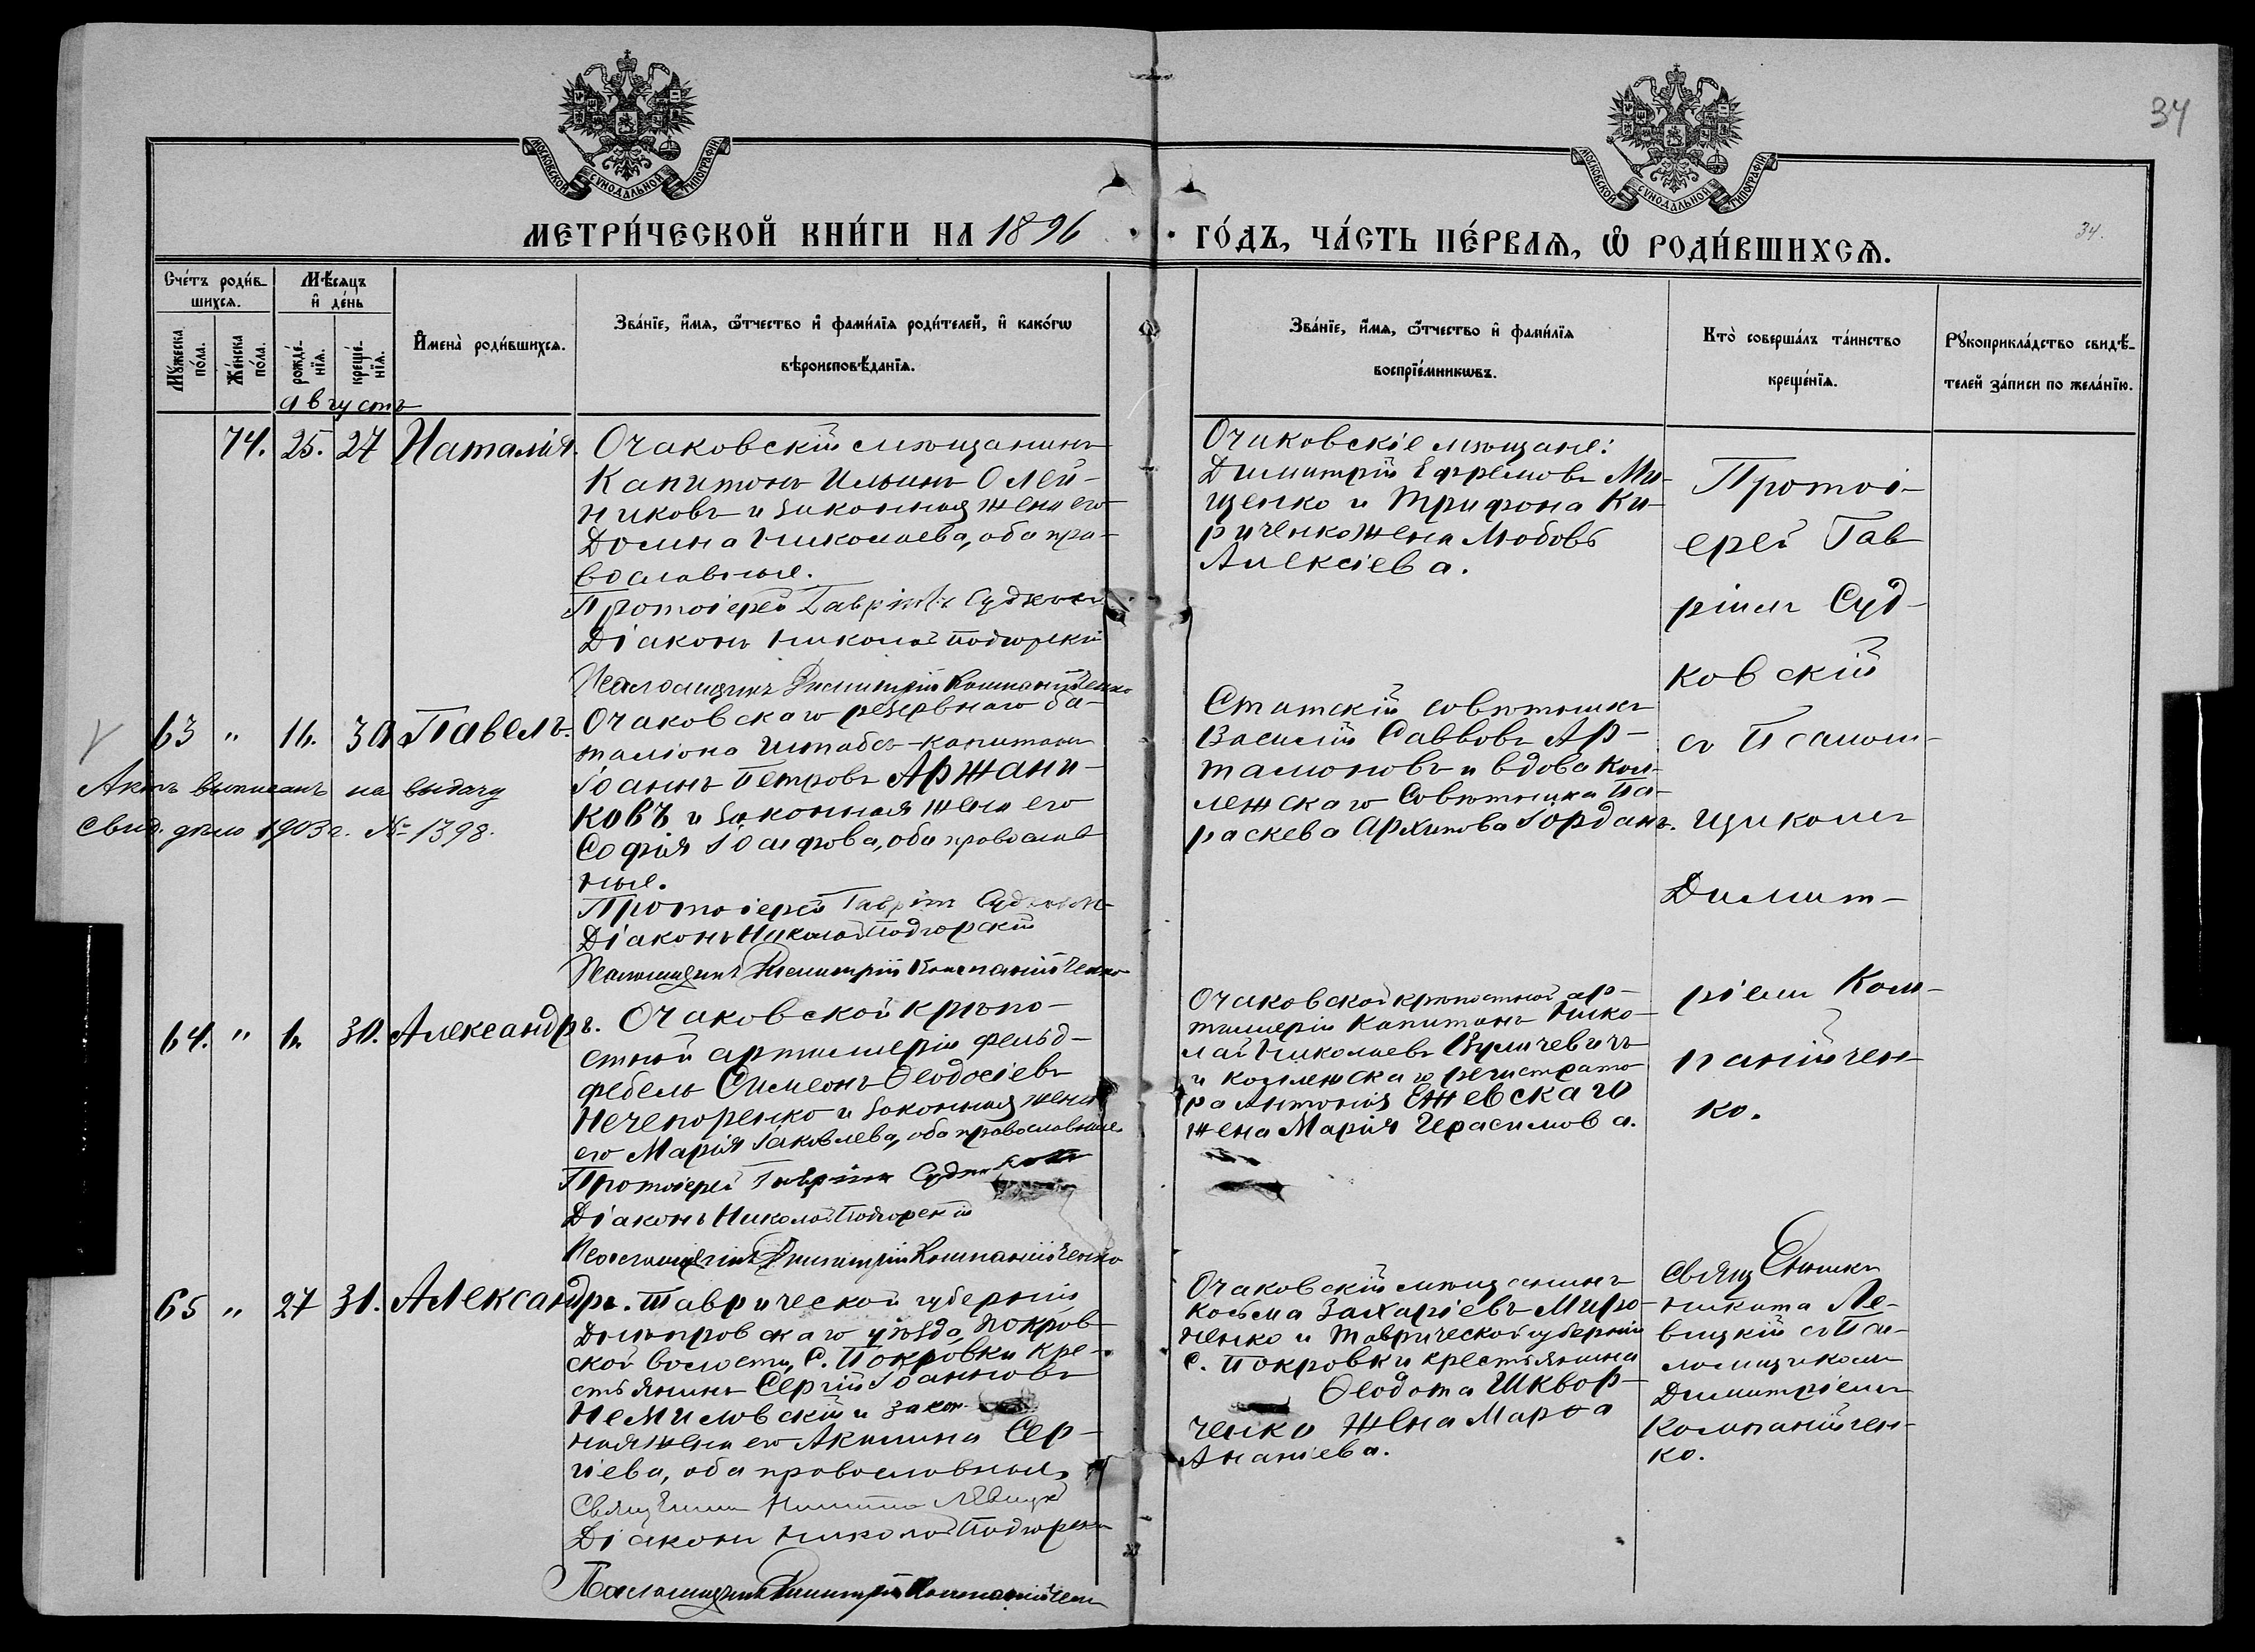 34
МОСКОВСКОЙ СѴНОДАЛЬНОЙ ТИПОГРАФІИ
МОСКОВСКОЙ СѴНОДАЛЬНОЙ ТИПОГРАФІИ
МЕТРИ́ЧЕСКОЙ КНИ́ГИ НА 1896
ГО́ДЪ, ЧА́СТЬ ПЕ́РВАѦ, Ѡ РОДИ́ВШИХСѦ.
34.
Сче́тъ роди́в-
шихсѧ.
Мѣ́сѧцъ
и҆ де́нь
Мꙋ́жеска по́ла.
Же́нска по́ла.
рожде́-
нїѧ.
креще́-
нїѧ.
И҆мена̀ роди́вшихсѧ.
Зва́нїе, и҆́мѧ, ѻ҆́тчество и҆ фами́лїѧ роди́телей, и҆ како́гѡ
вѣроисповѣ́данїѧ.
Зва́нїе, и҆́мѧ, ѻ҆́тчество и҆ фами́лїѧ
воспрїе́мникѡвъ.
Кто̀ соверша́лъ та́инство
креще́нїѧ.
Рꙋкоприкла́дство свидѣ́-
телей за́писи по жела́нїю.
августъ
74. 25. 27 Наталія.
Очаковскій мѣщанинъ
Капитонъ Ильинъ Олей-
никовъ и законная жена его
Домна Николаева, оба пра-
вославные.
Протоіерей Гавріилъ Судковскій
Діаконъ Николай Подгорскій
Псаломщикъ Димитрій Компанійченко
Очаковскіе мѣщане:
Димитрій Ефремовъ Ми-
щенко и Трифона Ки-
риченко жена Любовь
Алексіева.
Протоі-
ерей Гав
ріилъ Суд-
ковскій
съ Псалом-
щикомъ
Димит-
ріемъ Ком-
панійчен-
ко.
63 " 16. 30 Павелъ.
Очаковскаго резервнаго ба-
таліона Штабсъ-капитанъ
Іоаннъ Петровъ Аржани-
ковъ и законная жена его
Софія Іосифова, оба православ
ные.
Протоіерей Гавріилъ Судковскій
Діаконъ Николай Подгорскій
Псаломщикъ Димитрій Компанійченко
Актъ выписанъ на выдачу
свид. дѣло 1903 г. № 1398.
Статскій совѣтникъ
Василій Саввовъ Ар-
тамоновъ и вдова Кол-
лежскаго Совѣтника Па-
раскева Архипова Іорданъ.
64. " 30. Александръ.
Очаковской крѣпо-
стной артиллеріи фельд-
фебель Симеонъ Ѳеодосіевъ
Нечепоренко и законная жена
его Марія Іаковлева, оба православные
Протоіерей Гавріилъ Судковскій
Діаконъ Николай Подгорскій
Псаломщикъ Димитрій Компанійченко
Очаковской крѣпостной ар-
тиллеріи Капитанъ Нико-
лай Николаевъ
и коллежскаго регистрато
ра Антонія Ежевскаго
жена Марія Герасимова.
65 " 27 31. Александръ.
Таврической губерніи
Днѣпровскаго уѣзда, Покров-
ской волости, С. Покровки кре-
стьянинъ Сергій Іоанновъ
Немиловскій и закон-
ная жена его Акилина Сер-
гіева, оба православные
Священникъ Никита Левицкій
Діаконъ Николай Подгорскій
Псаломщикъ Димитрій Компанійченко
Очаковскій мѣщанинъ
Косьма Захаріевъ Миро-
ненко и Таврической губерніи
С. Покровки крестьянина
Ѳеодота Шквор-
ченко жена Марѳа
Ананіева.
Священникъ
Никита Ле-
вицкій съ Пса-
ломщикомъ
Димитріемъ
Компанійчен-
ко.